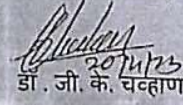 20/11/23
डॉ. जी. के. चव्हाण